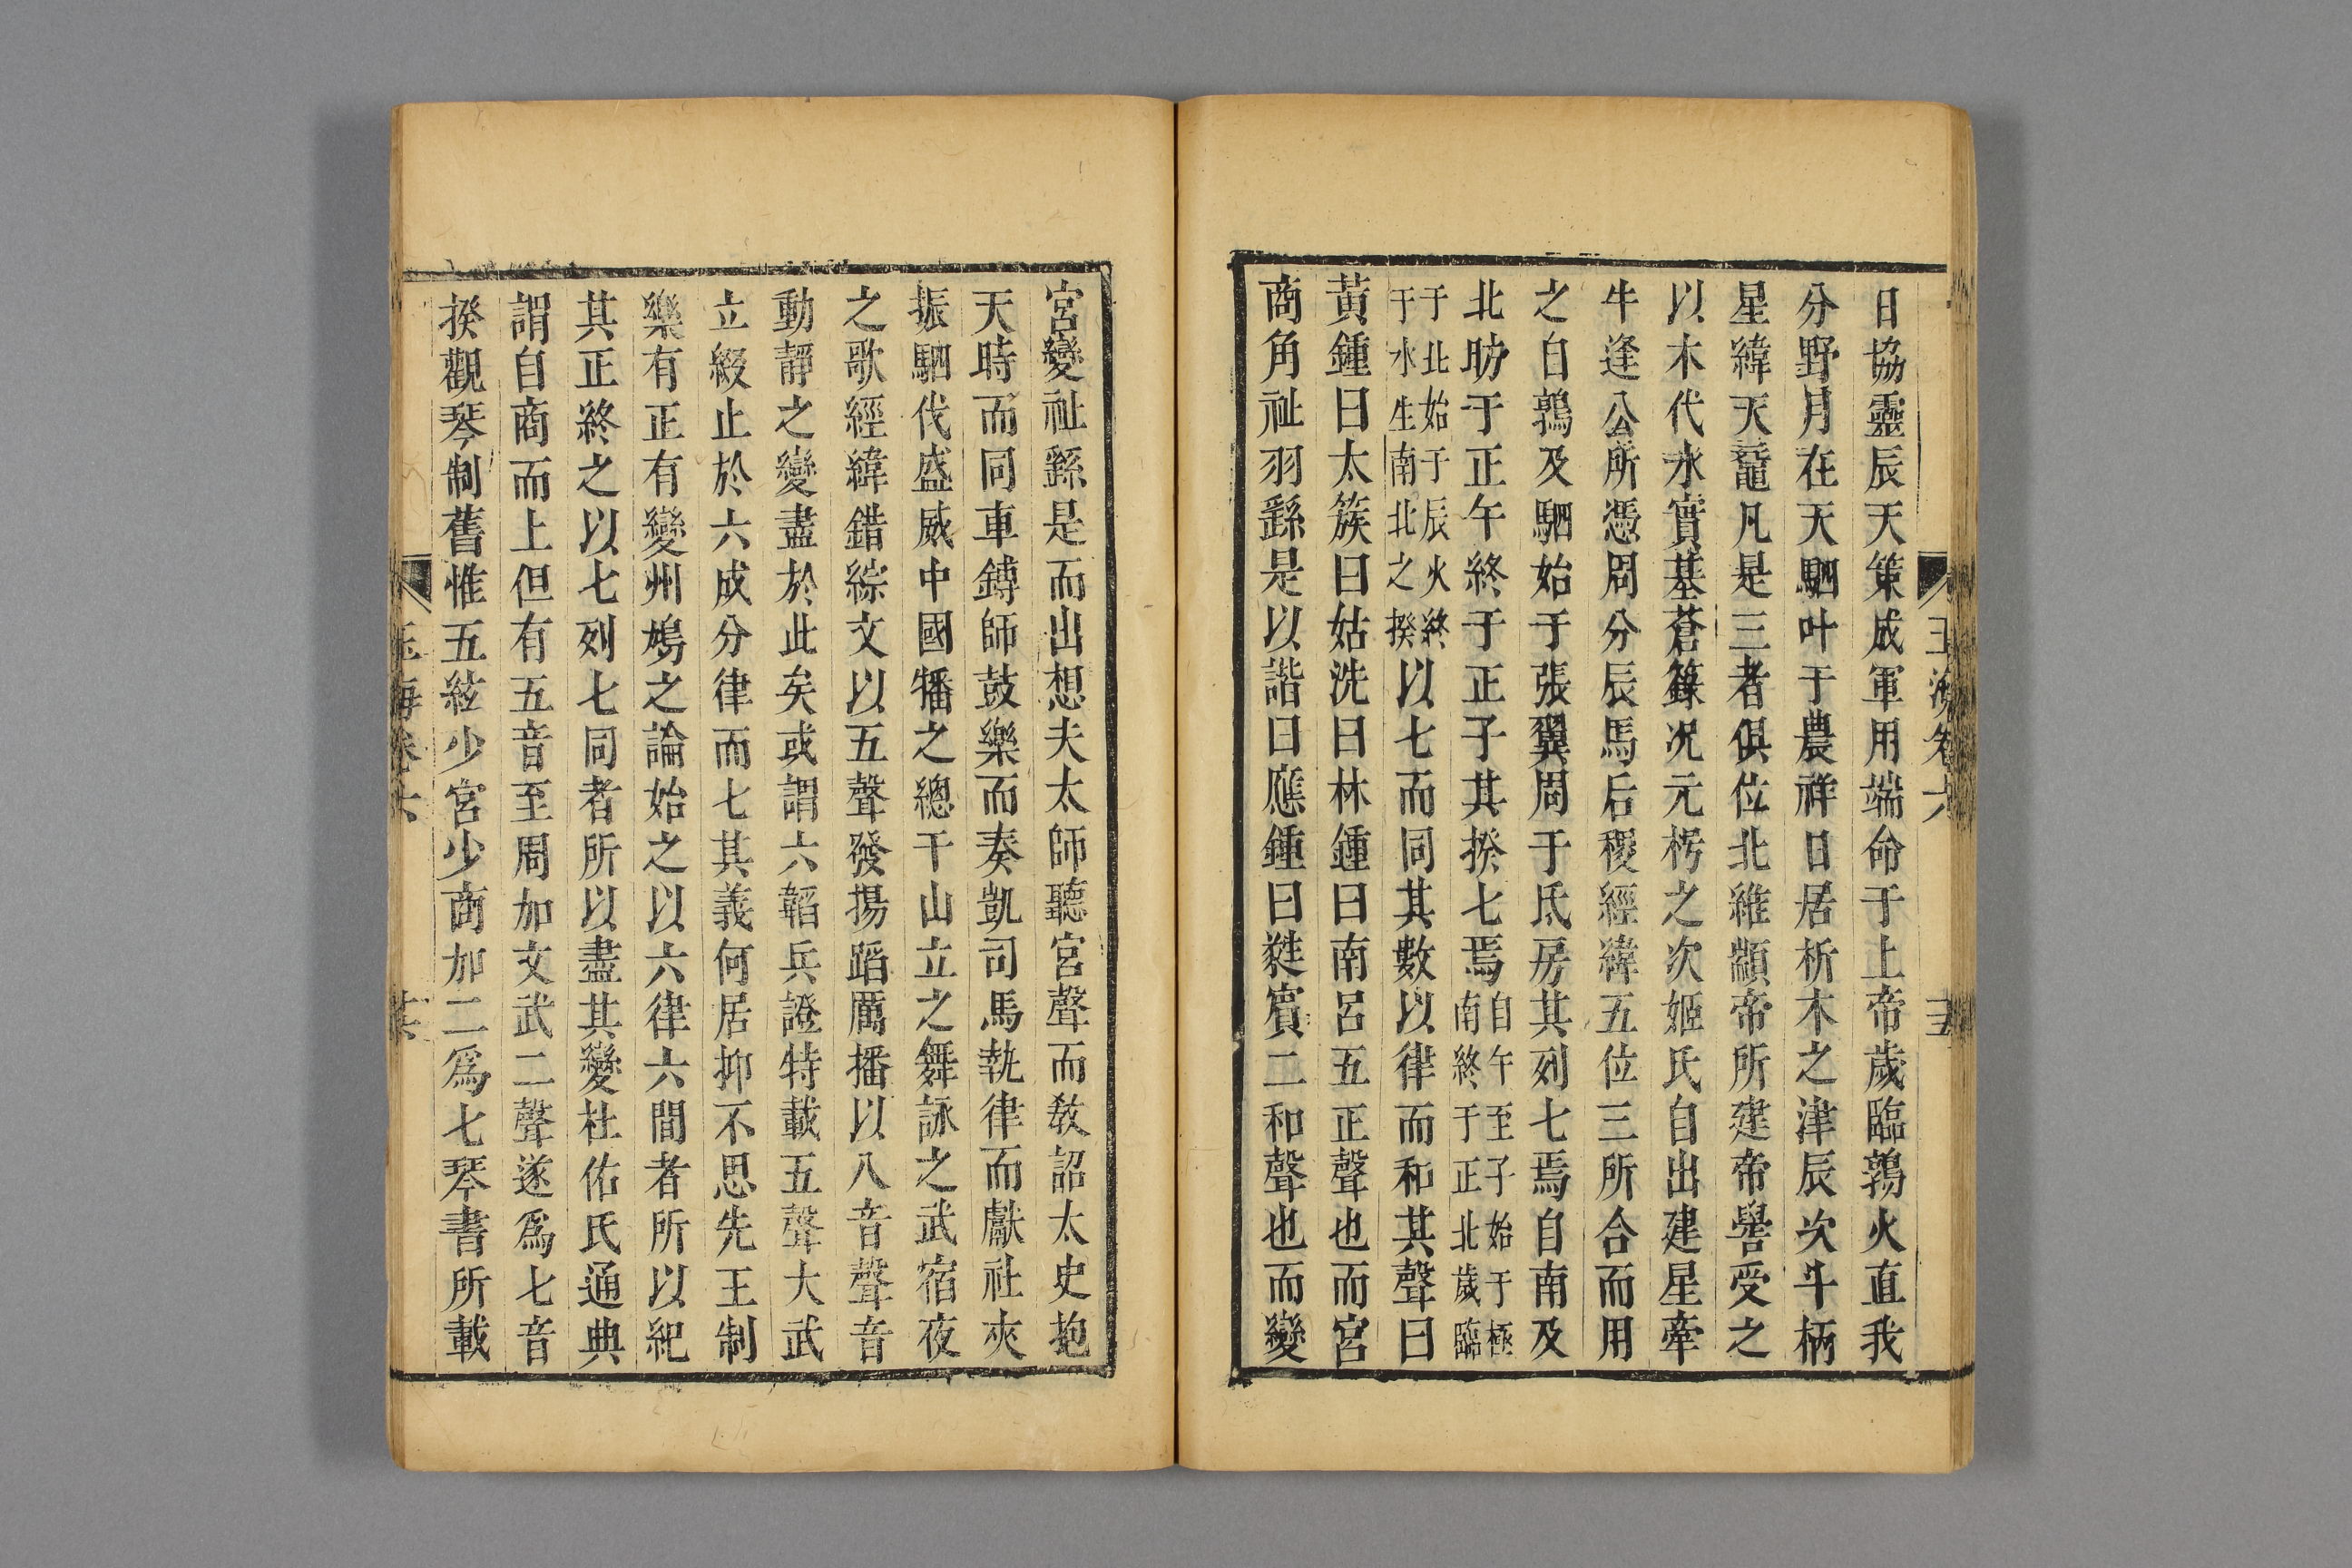 日協靈辰天策成軍用端命于上帝歲臨鶉火直我
分野月在天駟叶于農祥日居析木之津辰次斗柄
星緯天黿凡是三者俱位北維顓帝所建帝嚳受之
以木代水實基蒼籙况元枵之次姬氏自出建星牽
牛逢公所憑周分辰馬后稷經緯五位三所合而用
之自鶉及駟始于張翼周于氐房其列七焉自南及
北昉于正午終于正子其揆七焉自午至子始于極南終于正北歲臨
于北始于辰火終于水生南北之揆以七而同其數以律而和其聲曰
黃鍾曰太簇曰姑洗曰林鍾曰南呂五正聲也而宮
商角祉羽繇是以諧曰應鍾曰蕤賓二和聲也而變
宮變祉繇是而出想夫太師聽宮聲而敎詔太史抱
天時而同車鎛師鼓樂而奏凱司馬執律而獻社夾
振駟代盛威中國㸋之總干山立之舞詠之武宿夜
之歌經緯錯綜文以五聲發揚蹈厲播以八音聲音
動靜之變盡於此矣或謂六韜兵證特載五聲大武
立綴止於六成分律而七其義何居抑不思先王制
樂有正有變州鳩之論始之以六律六間者所以紀
其正終之以七列七同者所以盡其變杜佑氏通典
謂自商而上但有五音至周加文武二聲遂爲七音
揆觀琴制舊惟五絃少宮少商加二爲七琴書所載
玉海卷六